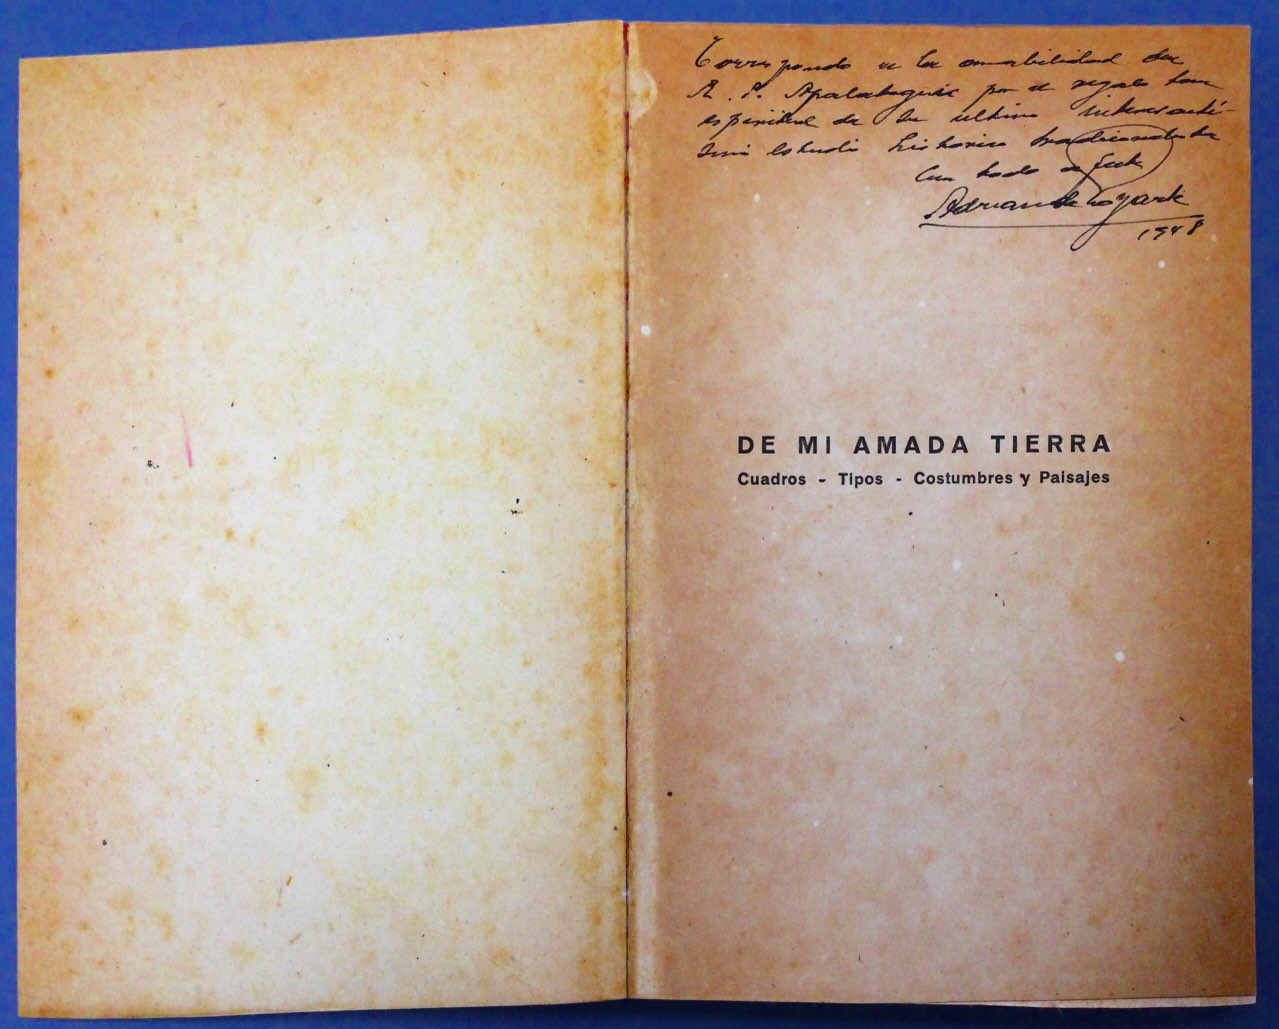 Correspondo a la amabilidad del
R. P. Apalategui por el regalo tan
espiritual de su último interesantí-
simo estudio histórico
Con todo afecto
Adrian de Loyarte
1948
DE MI AMADA TIERRA
Cuadros - Tipos - Costumbres y Paisajes